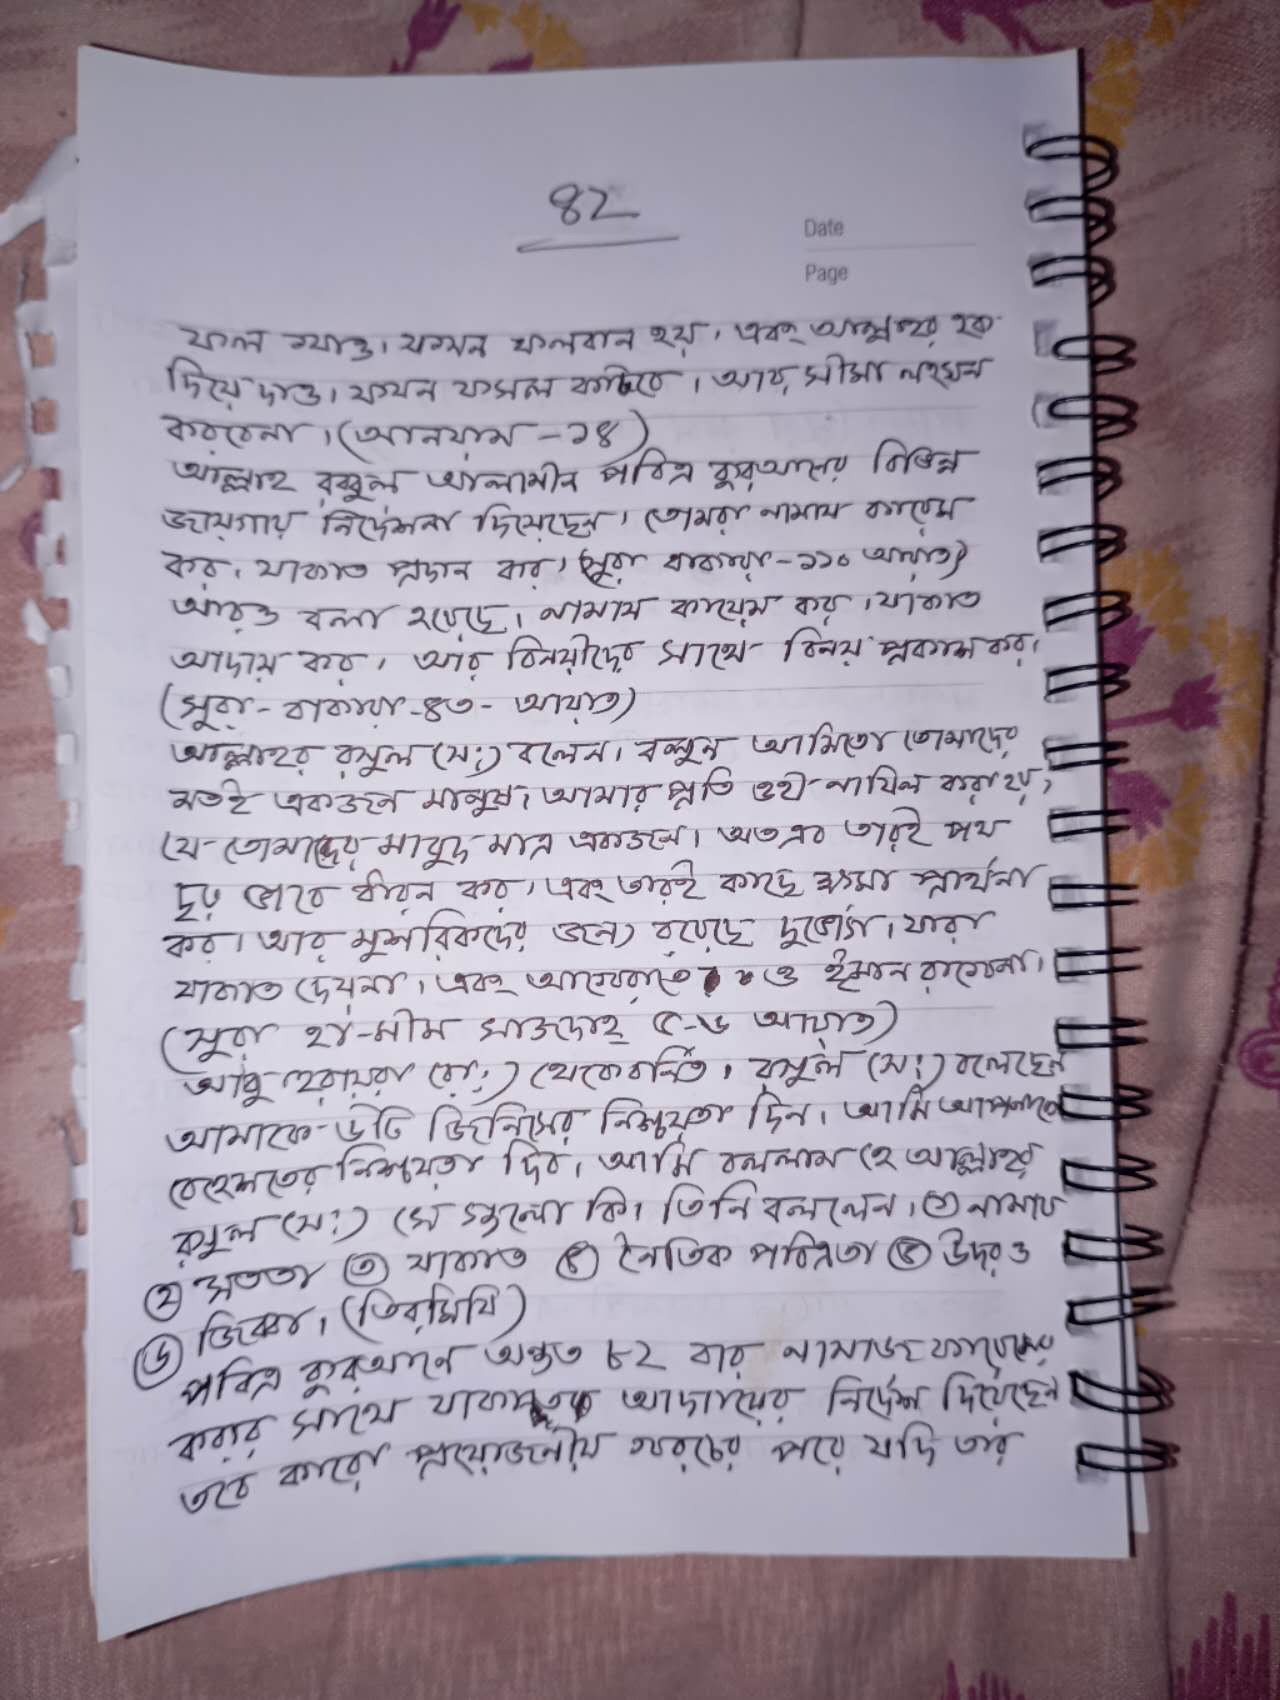 ৪২
Date
Page
ফল খাও, যখন ফলবান হয়, এবং আল্লাহর হক
দিয়ে দাও, যখন ফসল কাটবে। আর সীমা লংঘন
করবেনা, (আনয়াম -১৪)
আল্লাহ রব্বুল আলামীন পবিত্র কুরআনের বিভিন্ন
জায়গায় নির্দেশনা দিয়েছেন, তোমরা নামায কায়েম
কর, যাকাত প্রদান কর, (সুরা বাকারা-১১০ আয়াত)
আরও বলা হয়েছে, নামায কায়েম কর, যাকাত
আদায় কর, আর বিনয়ীদের সাথে বিনয় প্রকাশ কর,
(সুরা- বাকারা-৪৩- আয়াত)
আল্লাহর রসুল (স:) বলেন, বলুন আমিতো তোমাদের
মতই একজন মানুষ, আমার প্রতি ওহী নাযিল করা হয়,
যে তোমাদের মাবুদ মাত্র একজন। অতএব তারই পথ
দৃঢ় ভাবে ধারন কর, এবং তারই কাছে ক্ষমা প্রার্থনা
কর। আর মুশরিকদের জন্য রয়েছে দুর্ভোগ, যারা
যাকাত দেয়না, এবং আখেরাতে ও ঈমান রাখেনা,
(সুরা হা-মীম সাজদাহ ৫-৬ আয়াত)
আবু হুরায়রা (রা:) থেকে বর্নিত, রসুল (স:) বলেছেন
আমাকে ৬টি জিনিসের নিশ্চয়তা দিন, আমি আপনাকে
বেহেশতের নিশ্চয়তা দিব, আমি বললাম হে আল্লাহর
রসুল (স:) সে গুলো কি, তিনি বললেন, ১ নামায
২ সততা ৩ যাকাত ৪ নৈতিক পবিত্রতা ৫ উদর ও
৬ জিহ্বা, (তিরমিযি)
পবিত্র কুরআনে অন্তত ৮২ বার নামাজ কায়েমের
করার সাথে আদায়ের নির্দেশ দিয়েছেন
তবে কারো প্রয়োজনীয় খরচের পরে যদি তার